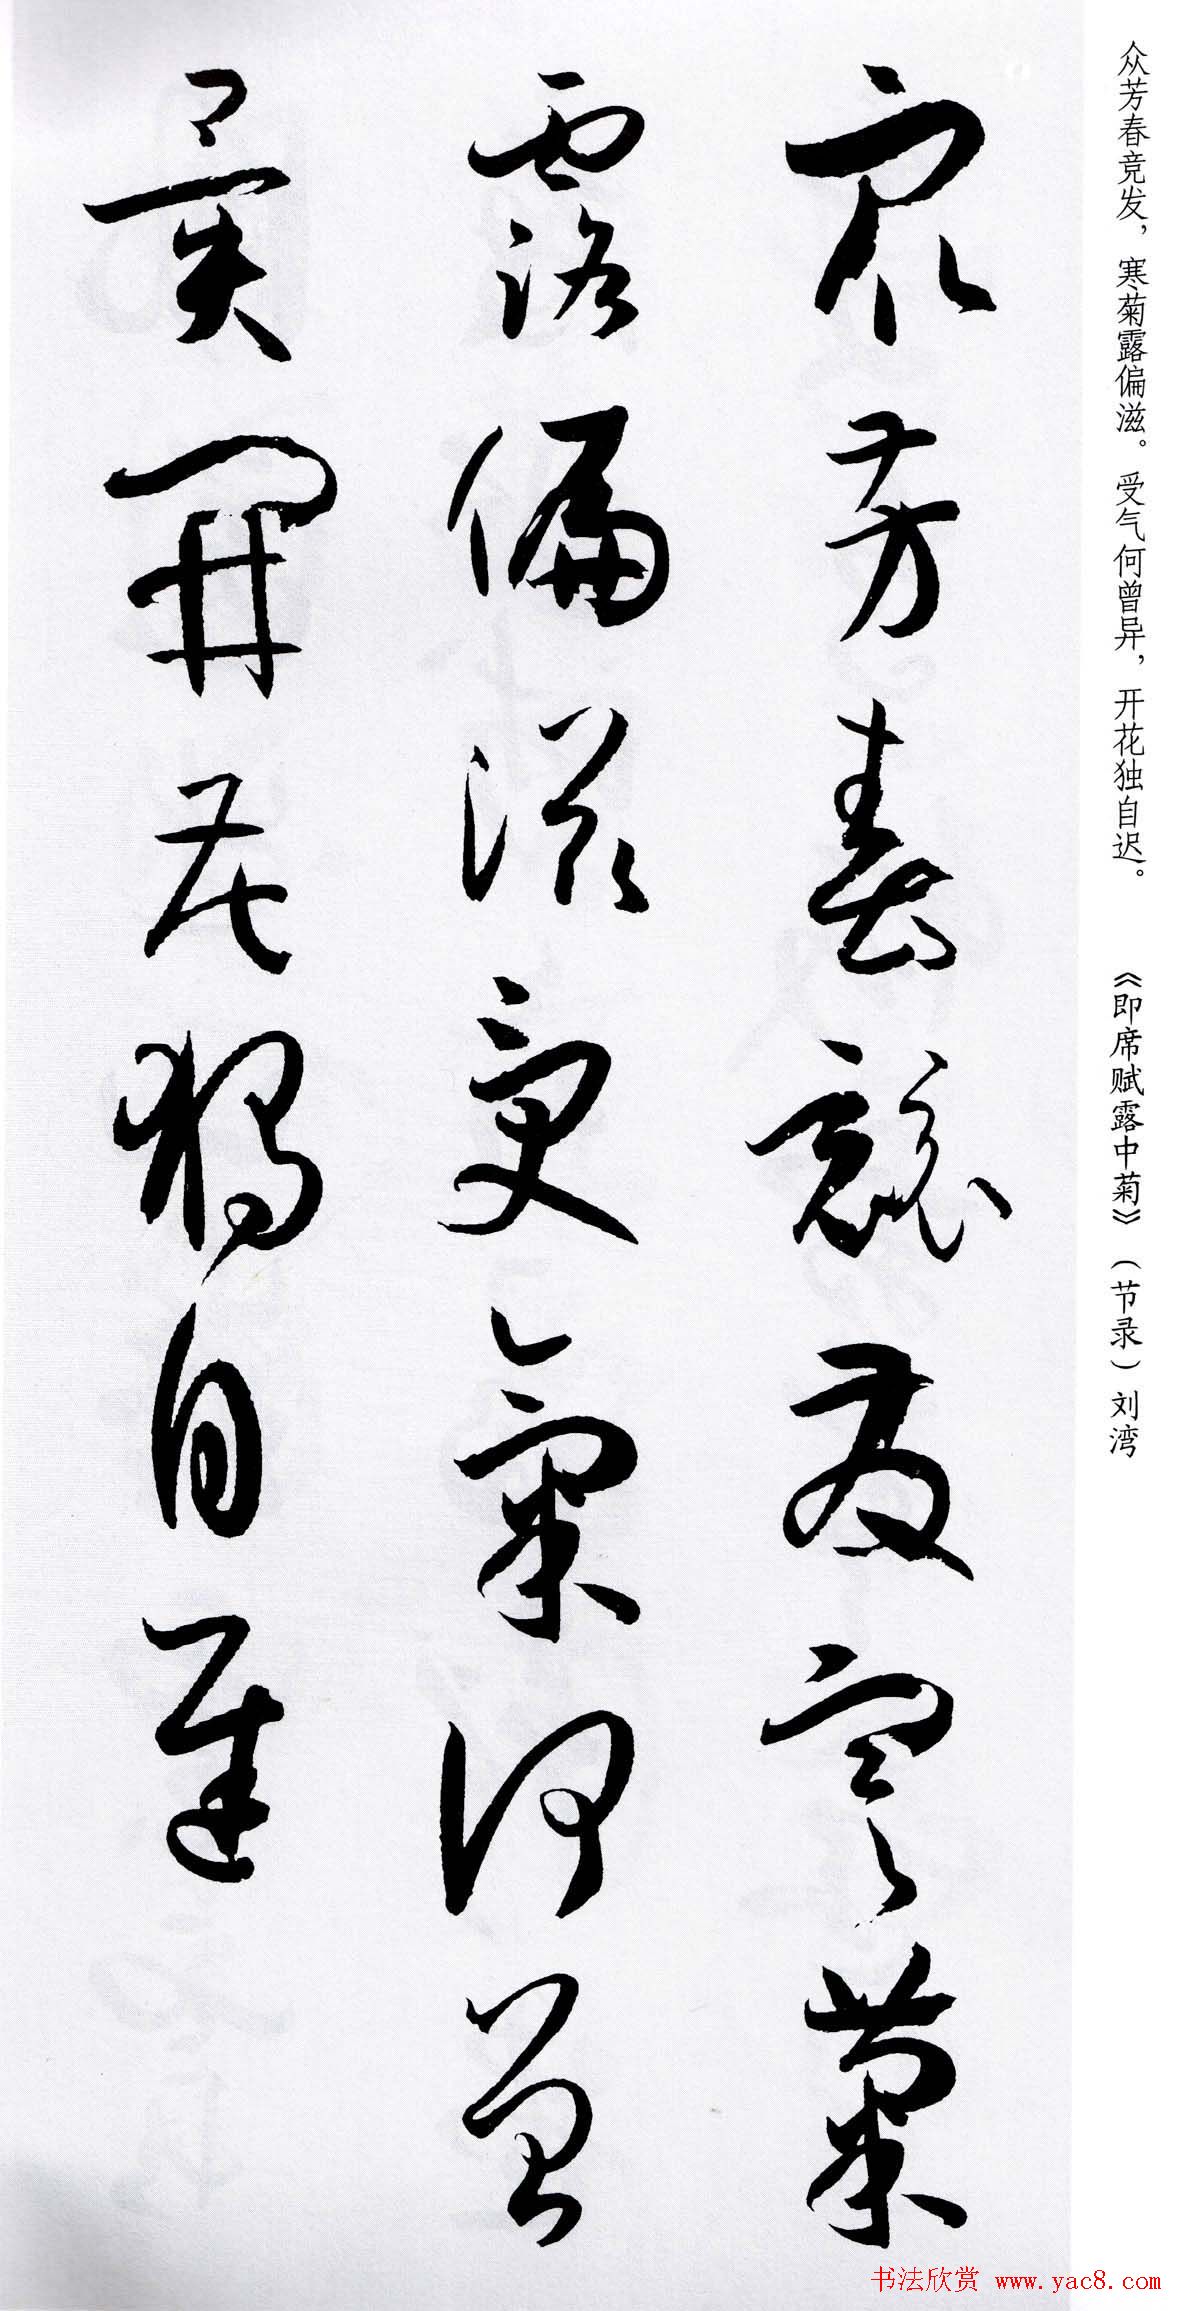 众芳春竞发，寒菊露偏滋。受气何曾异，开花独自迟。　《即席赋露中菊》（节录）刘湾
众芳春競发寒菊
露偏滋受氣何曾
異開花獨自遲
书法欣赏 www.yac8.com